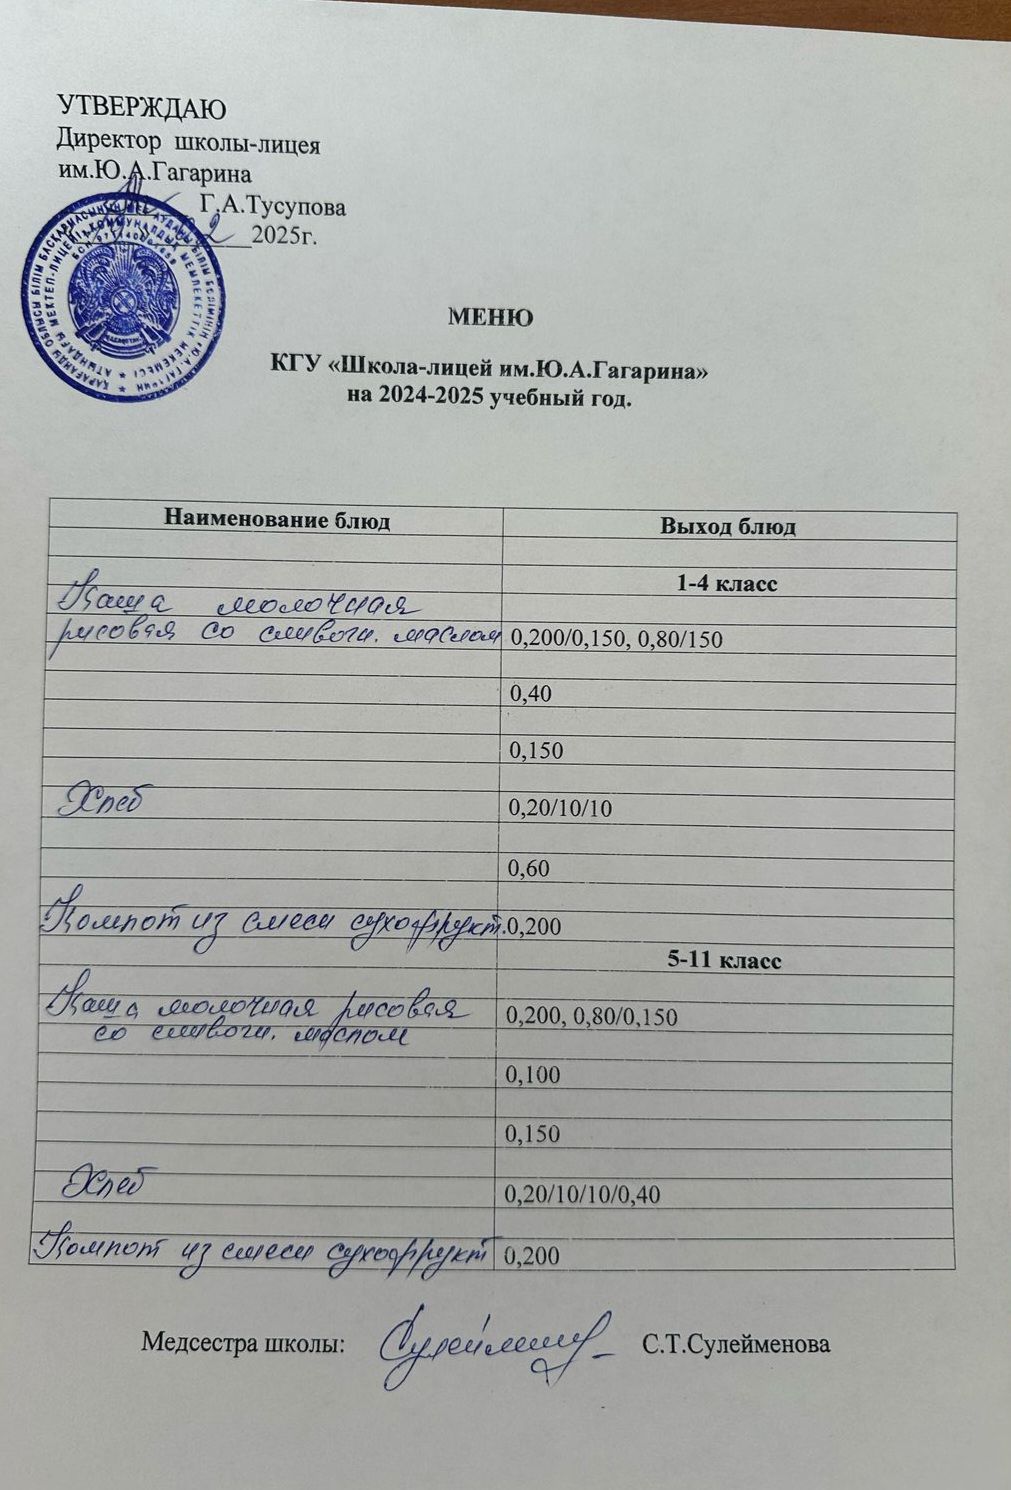 УТВЕРЖДАЮ
Директор школы-лицея
им.Ю.А.Гагарина
Г.А.Тусупова
2025г.
МЕНЮ
КГУ «Школа-лицей им.Ю.А.Гагарина»
на 2024-2025 учебный год.
Наименование блюд Выход блюд
1-4 класс
Каша молочная
рисовая со сливочн. маслом 0,200/0,150, 0,80/150
0,40
0,150
Хлеб 0,20/10/10
0,60
Компот из смеси сухофрукт. 0,200
5-11 класс
Каша молочная рисовая 0,200, 0,80/0,150
со сливочн. маслом
0,100
0,150
Хлеб 0,20/10/10/0,40
Компот из смеси сухофрукт 0,200
Медсестра школы: С.Т.Сулейменова